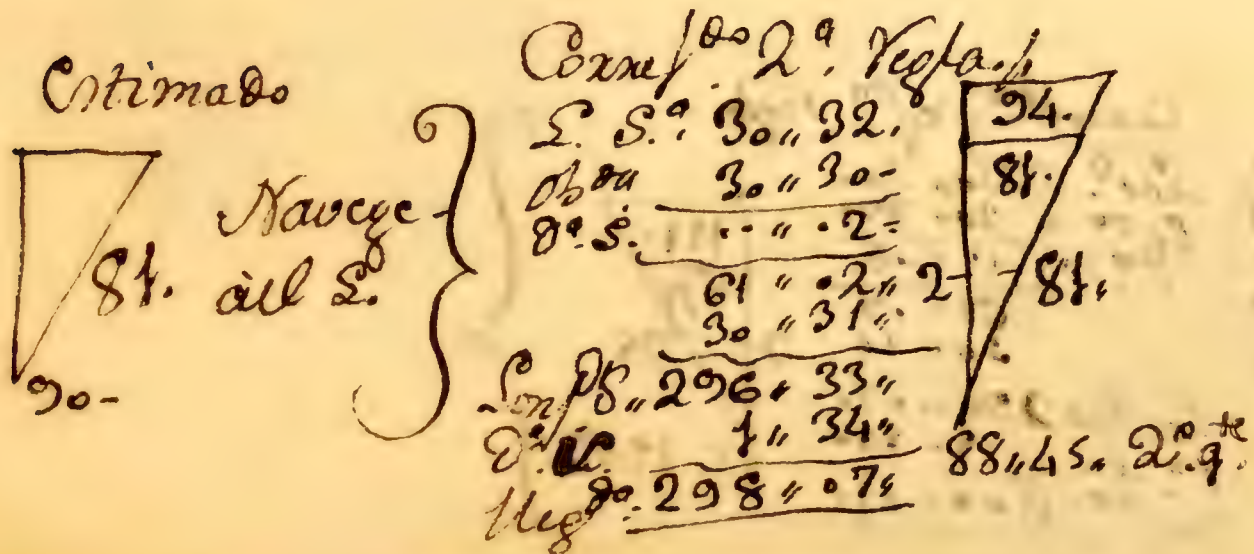 Estimado
81.
90-
Navege
àll L.
Corres^do. 2ª. Regla.
L. S.ª 30,, 32.
Ob^da 30,, 30-
D.ª S. ..,, .2-
61 ,, .2,, 2-
30 ,, 31,,
Lon^ps,, 296,, 33,,
D.ª L. 1,, 34,,
Lleg^do. 298,, .7,,
94.
81.
81,,
88,,45,, 2.º q^te